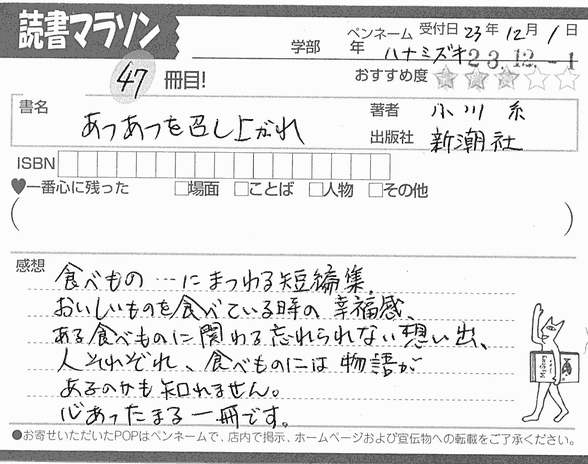 読書マラソン
学部 年 ペンネーム ハナミズキ 受付日 23年 12月 1日
23.12.-1
47 冊目!
おすすめ度 ★★★☆☆
書名 あつあつを召し上がれ
著者 小川 糸
出版社 新潮社
ISBN
♥一番心に残った □場面 □ことば □人物 □その他
( )
感想
食べもの…にまつわる短編集。
おいしいものを食べている時の幸福感、
ある食べものに関わる忘れられない想い出、
人それぞれ、食べものには物語が
あるのかも知れません。
心あったまる一冊です。
●お寄せいただいたPOPはペンネームで、店内で掲示、ホームページおよび宣伝物への転載をご了承ください。